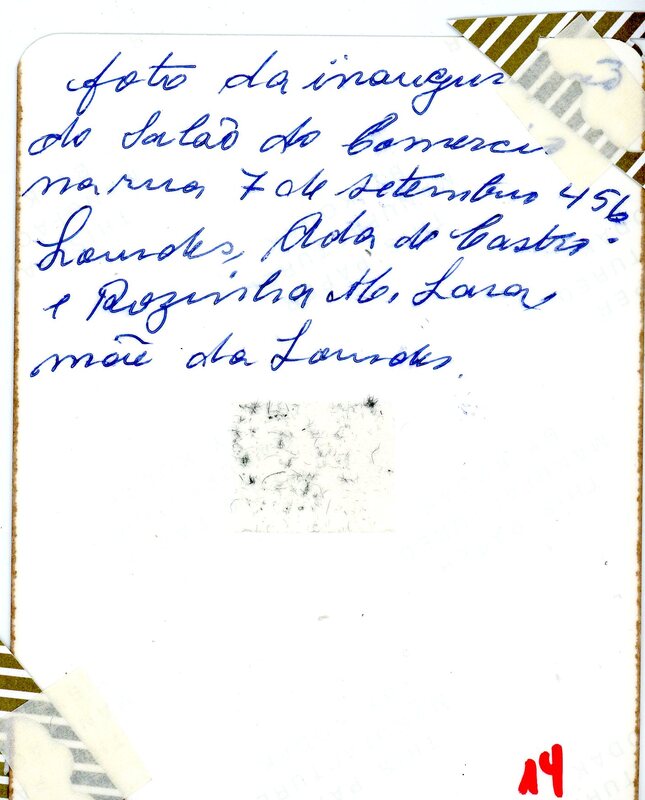 foto da inaugur
do Salão do Comercio
na rua 7 de setembro 456
Lourdes, Ada de Castro.
e Rozinha M. Lara,
mãe da Lourdes.
14